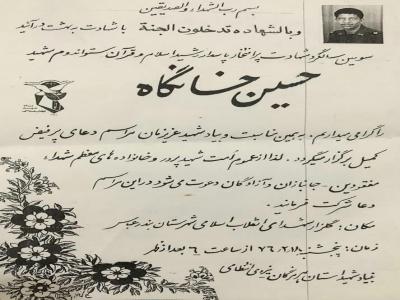 بسم رب الشهداء والصدیقین
و بالشهاده قد خلون الجنة با شهادت به بهشت درآئید
سومین سالگرد شهادت پرافتخار پاسدار رشید اسلام و قرآن ستواندوم شهید
حسین خانگاه
را گرامی میداریم. به همین مناسبت و بیاد شهید عزیزمان مراسم دعای پرفیض
کمیل برگزار میگردد. لذا از عموم امت شهیدپرور و خانواده های معظم شهداء
مفقودین، جانبازان و آزادگان دعوت می شود در این مراسم
دعا شرکت فرمایند.
مکان: گلزار شهدای انقلاب اسلامی شهرستان بندرعباس
زمان: پنجشنبه ۷۶/۲/۱۸ از ساعت ۶ بعد از ظهر
بنیاد شهید استان هرمزگان نیروی انتظامی